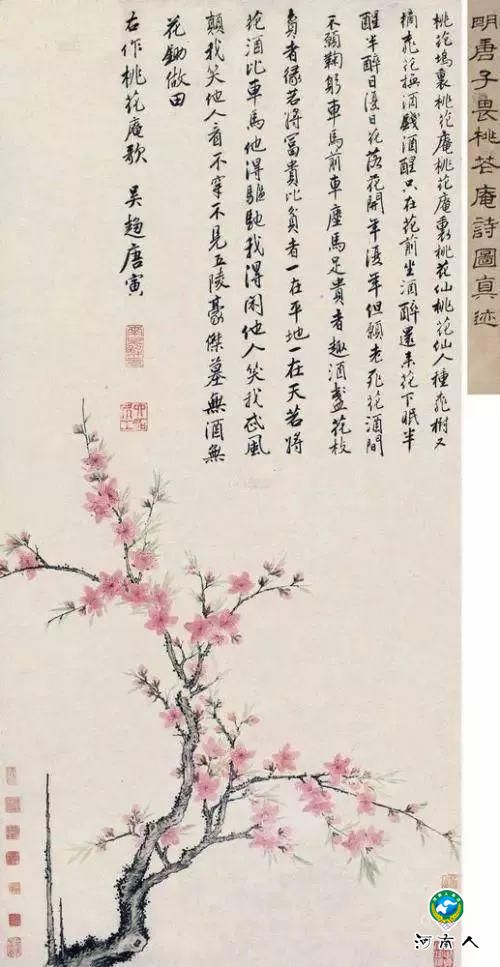 明唐子畏桃花庵詩圖真迹
桃花塢裏桃花庵桃花庵裏桃花仙桃花仙人種桃樹又
摘桃花換酒錢酒醒只在花前坐酒醉還來花下眠半
醒半醉日復日花落花開年復年但願老死花酒間
不願鞠躬車馬前車塵馬足貴者趣酒盞花枝
貧者緣若將富貴比貧者一在平地一在天若將
花酒比車馬他得驅馳我得閑他人笑我忒風
顛我笑他人看不穿不見五陵豪傑墓無酒無
花鋤做田
右作桃花庵歌 吳趨唐寅
河南人